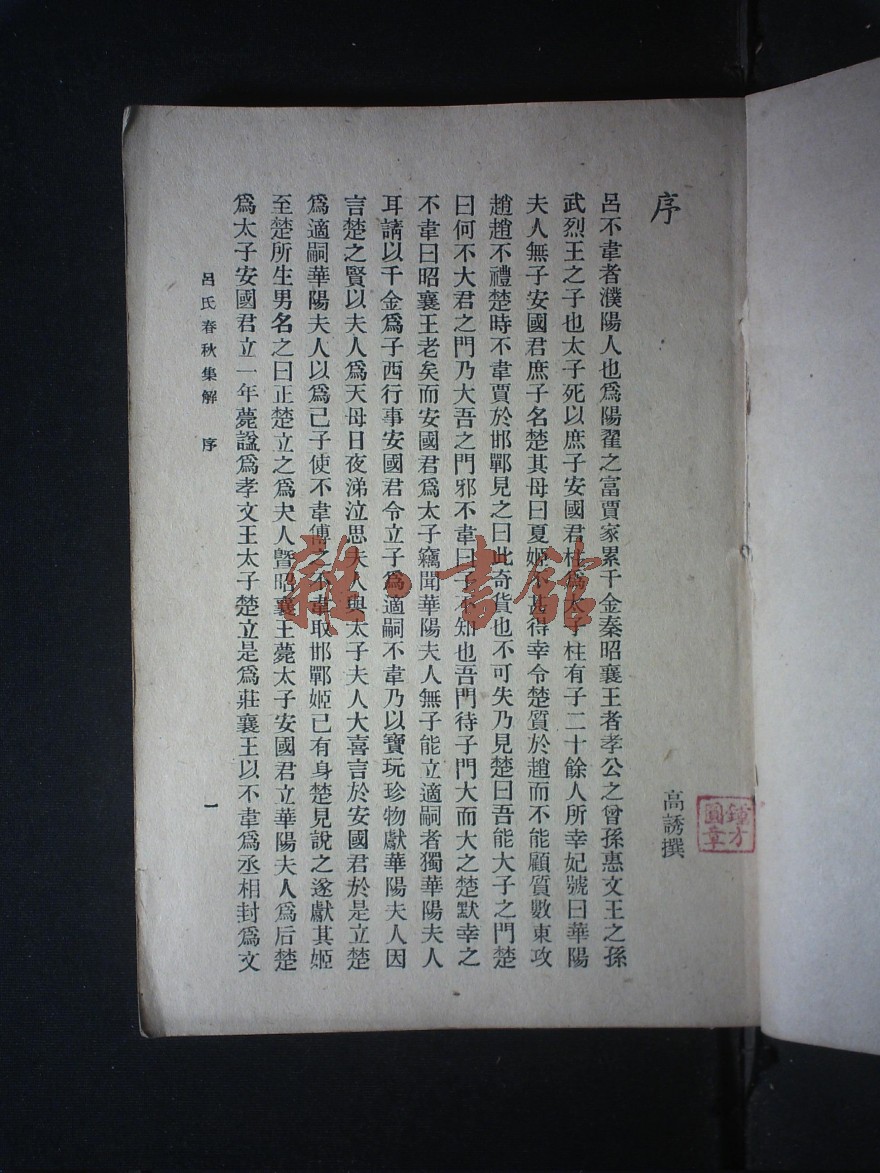 序
高誘撰
呂不韋者濮陽人也爲陽翟之富賈家累千金秦昭襄王者孝公之曾孫惠文王之孫
武烈王之子也太子死以庶子安國君柱爲太子柱有子二十餘人所幸妃號曰華陽
夫人無子安國君庶子名楚其母曰夏姬不甚得幸令楚質於趙而不能顧質數東攻
趙趙不禮楚時不韋賈於邯鄲見之曰此奇貨也不可失乃見楚曰吾能大子之門楚
曰何不大君之門乃大吾之門邪不韋曰子不知也吾門待子門大而大之楚默幸之
不韋曰昭襄王老矣而安國君爲太子竊聞華陽夫人無子能立適嗣者獨華陽夫人
耳請以千金爲子西行事安國君令立子爲適嗣不韋乃以寶玩珍物獻華陽夫人因
言楚之賢以夫人爲天母日夜涕泣思夫人與太子夫人大喜言於安國君於是立楚
爲適嗣華陽夫人以爲己子使不韋傅之不韋取邯鄲姬已有身楚見說之遂獻其姬
至楚所生男名之曰正楚立之爲夫人曁昭襄王薨太子安國君立華陽夫人爲后楚
爲太子安國君立一年薨諡爲孝文王太子楚立是爲莊襄王以不韋爲丞相封爲文
呂氏春秋集解 序 一
雜·書館